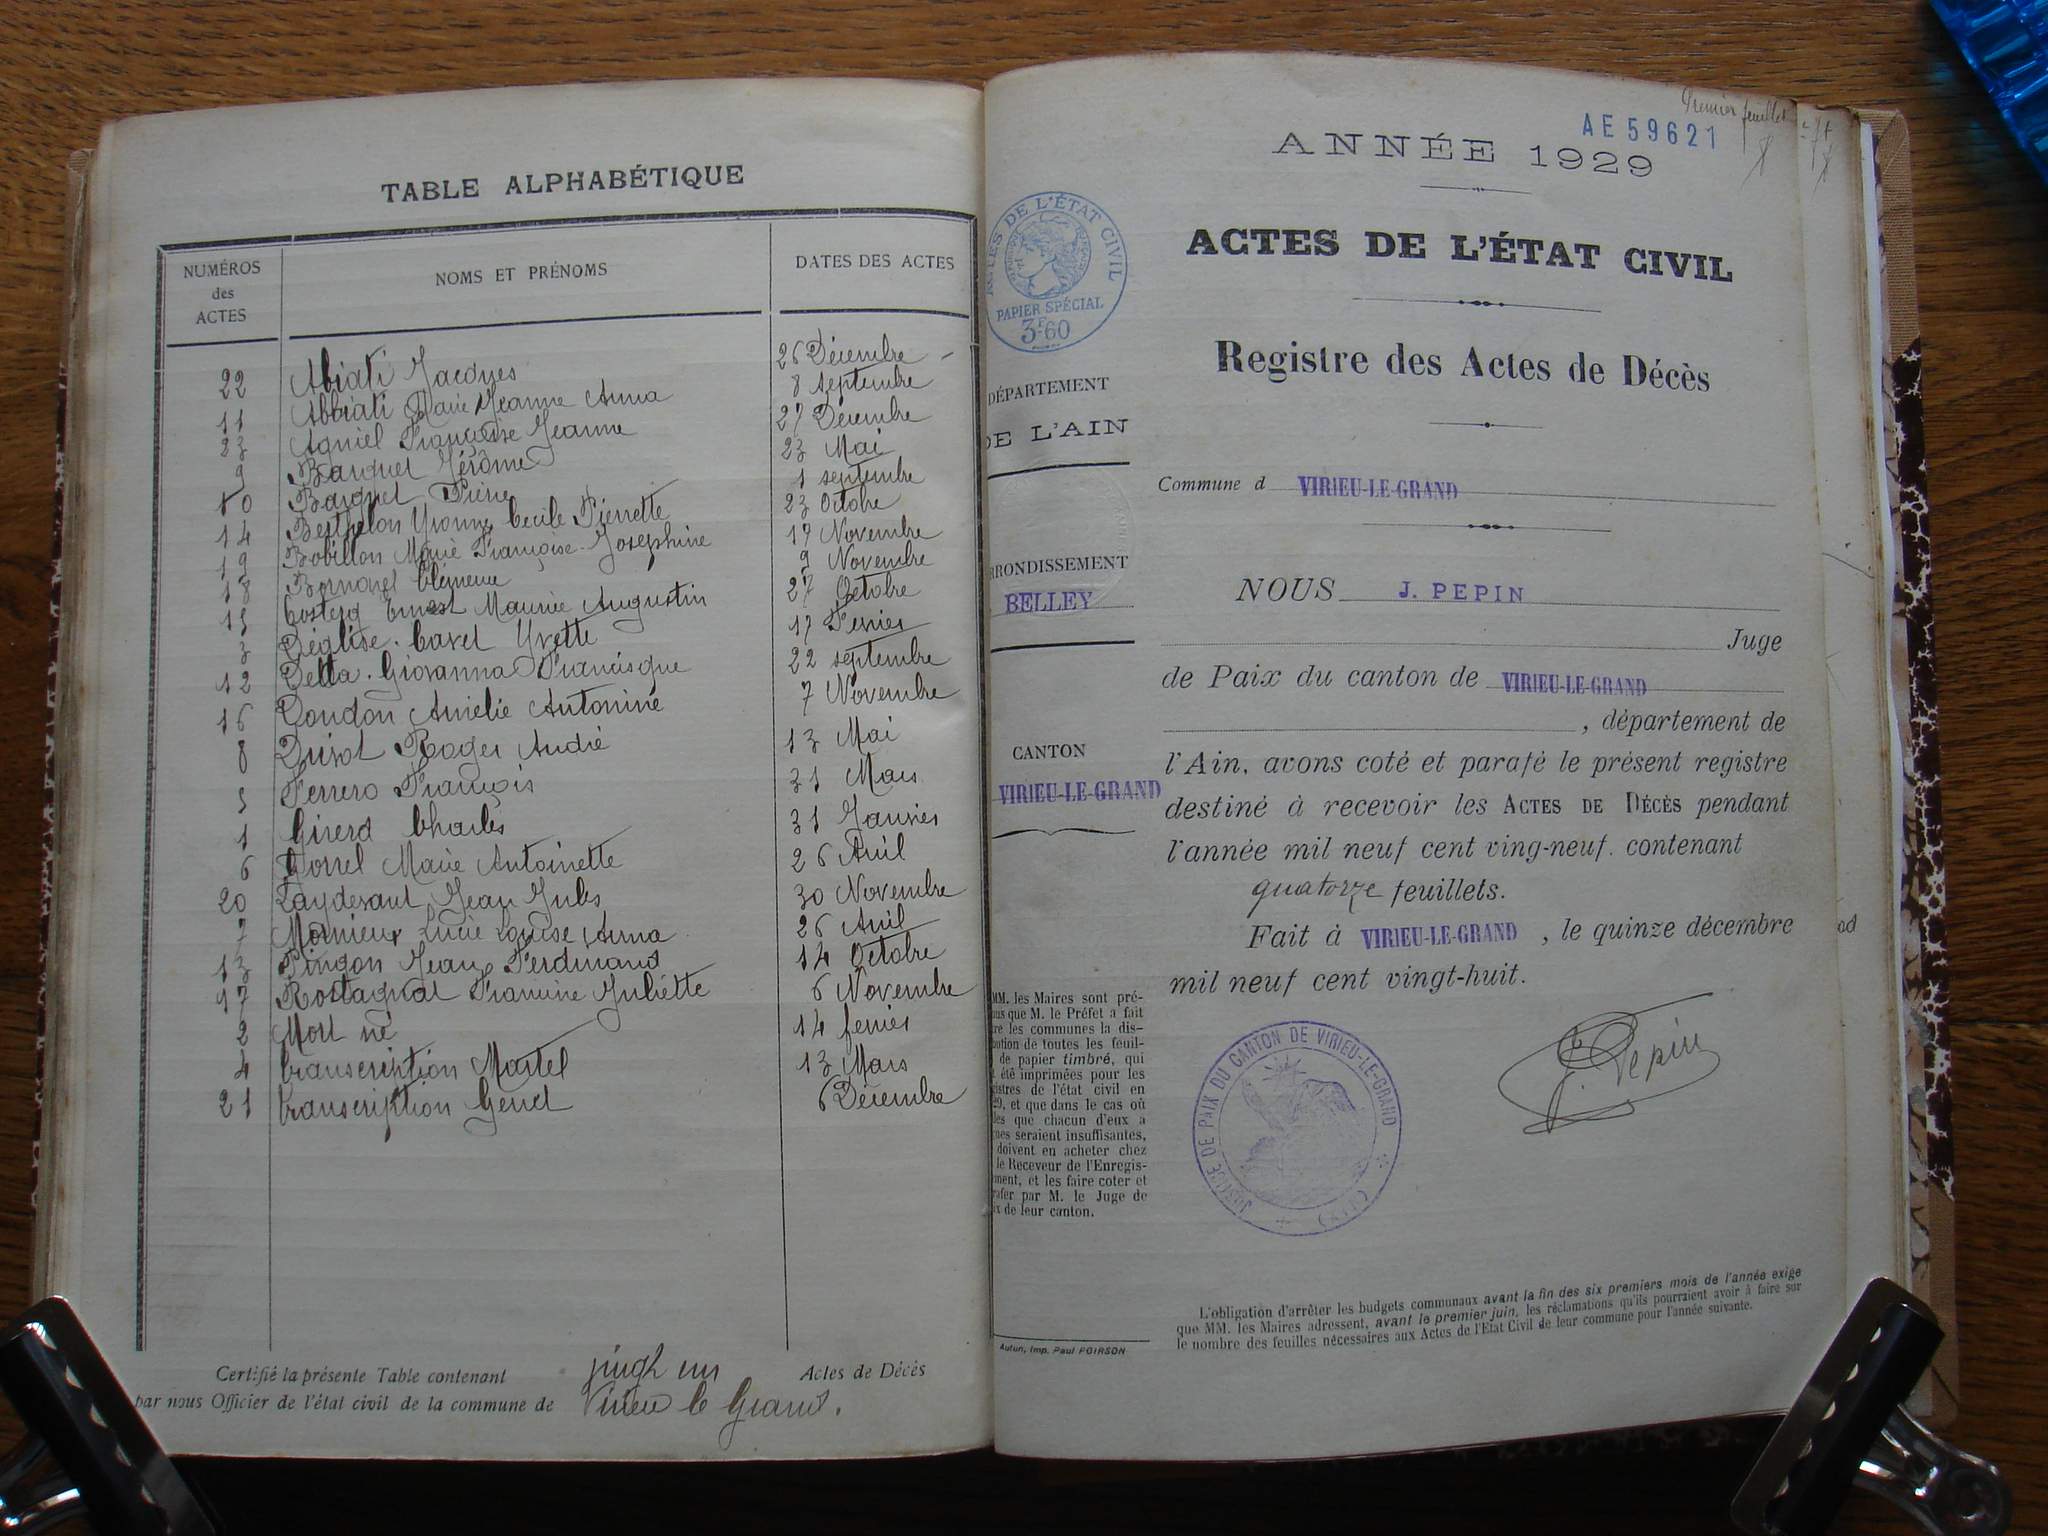 TABLE ALPHABÉTIQUE
NUMÉROS des ACTES NOMS ET PRÉNOMS DATES DES ACTES
22 Abiati Jacques 26 Décembre
11 Abbiati Marie Jeanne Anna 8 septembre
23 Agniel Françoise Jeanne 27 Décembre
9 Barquet Jérôme 23 Mai
10 Barquet Pierre 1 septembre
14 Berthelon Yvonne Cecile Pierrette 23 Octobre
19 Bobillon Marie Françoise Josephine 17 Novembre
18 Clémence 9 Novembre
15 Ernest Maurice Augustin 27 Octobre
3 Déglise. Cavet Yvette 17 Fevrier
12 Della. Giovanna Francisque 22 septembre
16 Dondon Amelie Antonine 7 Novembre
8 Roger André 13 Mai
5 Ferrero François 31 Mars
1 Girerd Charles 31 Janvier
6 Gorrel Marie Antoinette 26 Avril
20 Laydevant Jean Jules 30 Novembre
7 Lucie Louise Anna 26 Avril
13 Pingon Jean Ferdinand 14 Octobre
17 Rostagnat Francine Juliette 6 Novembre
2 Mort né 14 fevrier
4 transcription Martel 13 Mars
21 transcription Genet 6 Décembre
Certifié la présente Table contenant vingt un Actes de Décès
par nous Officier de l'état civil de la commune de Virieu le Grand.
Premier feuillet
AE59621
ANNÉE 1929
ACTES DE L'ÉTAT CIVIL
Registre des Actes de Décès
Commune d VIRIEU-LE-GRAND
NOUS J. PEPIN
Juge
de Paix du canton de VIRIEU-LE-GRAND
, département de
l'Ain, avons coté et parafé le présent registre
destiné à recevoir les ACTES DE DÉCÈS pendant
l'année mil neuf cent ving-neuf. contenant
quatorze feuillets.
Fait à VIRIEU-LE-GRAND , le quinze décembre
mil neuf cent vingt-huit.
J. Pepin
JUSTICE DE PAIX DU CANTON DE VIRIEU-LE-GRAND
(AIN)
L'obligation d'arrêter les budgets communaux avant la fin des six premiers mois de l'année exige
que MM. les Maires adressent, avant le premier juin, les réclamations qu'ils pourraient avoir à faire sur
le nombre des feuilles nécessaires aux Actes de l'Etat Civil de leur commune pour l'année suivante.
DE L'ÉTAT CIVIL
PAPIER SPÉCIAL
3F60
DÉPARTEMENT
DE L'AIN
RRONDISSEMENT
BELLEY
CANTON
VIRIEU-LE-GRAND
MM. les Maires sont pré-
us que M. le Préfet a fait
re les communes la dis-
bution de toutes les feuil-
de papier timbré, qui
été imprimées pour les
istres de l'état civil en
29, et que dans le cas où
les que chacun d'eux a
ues seraient insuffisantes,
doivent en acheter chez
le Receveur de l'Enregis-
ment, et les faire coter et
rafer par M. le Juge de
ix de leur canton.
Autun, Imp. Paul POIRSON